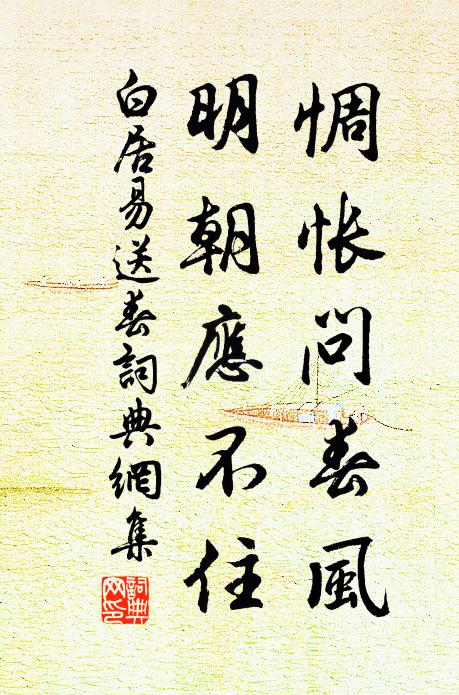 惆悵問春風
明朝應不住
白居易送春詞典網集
詞典網印